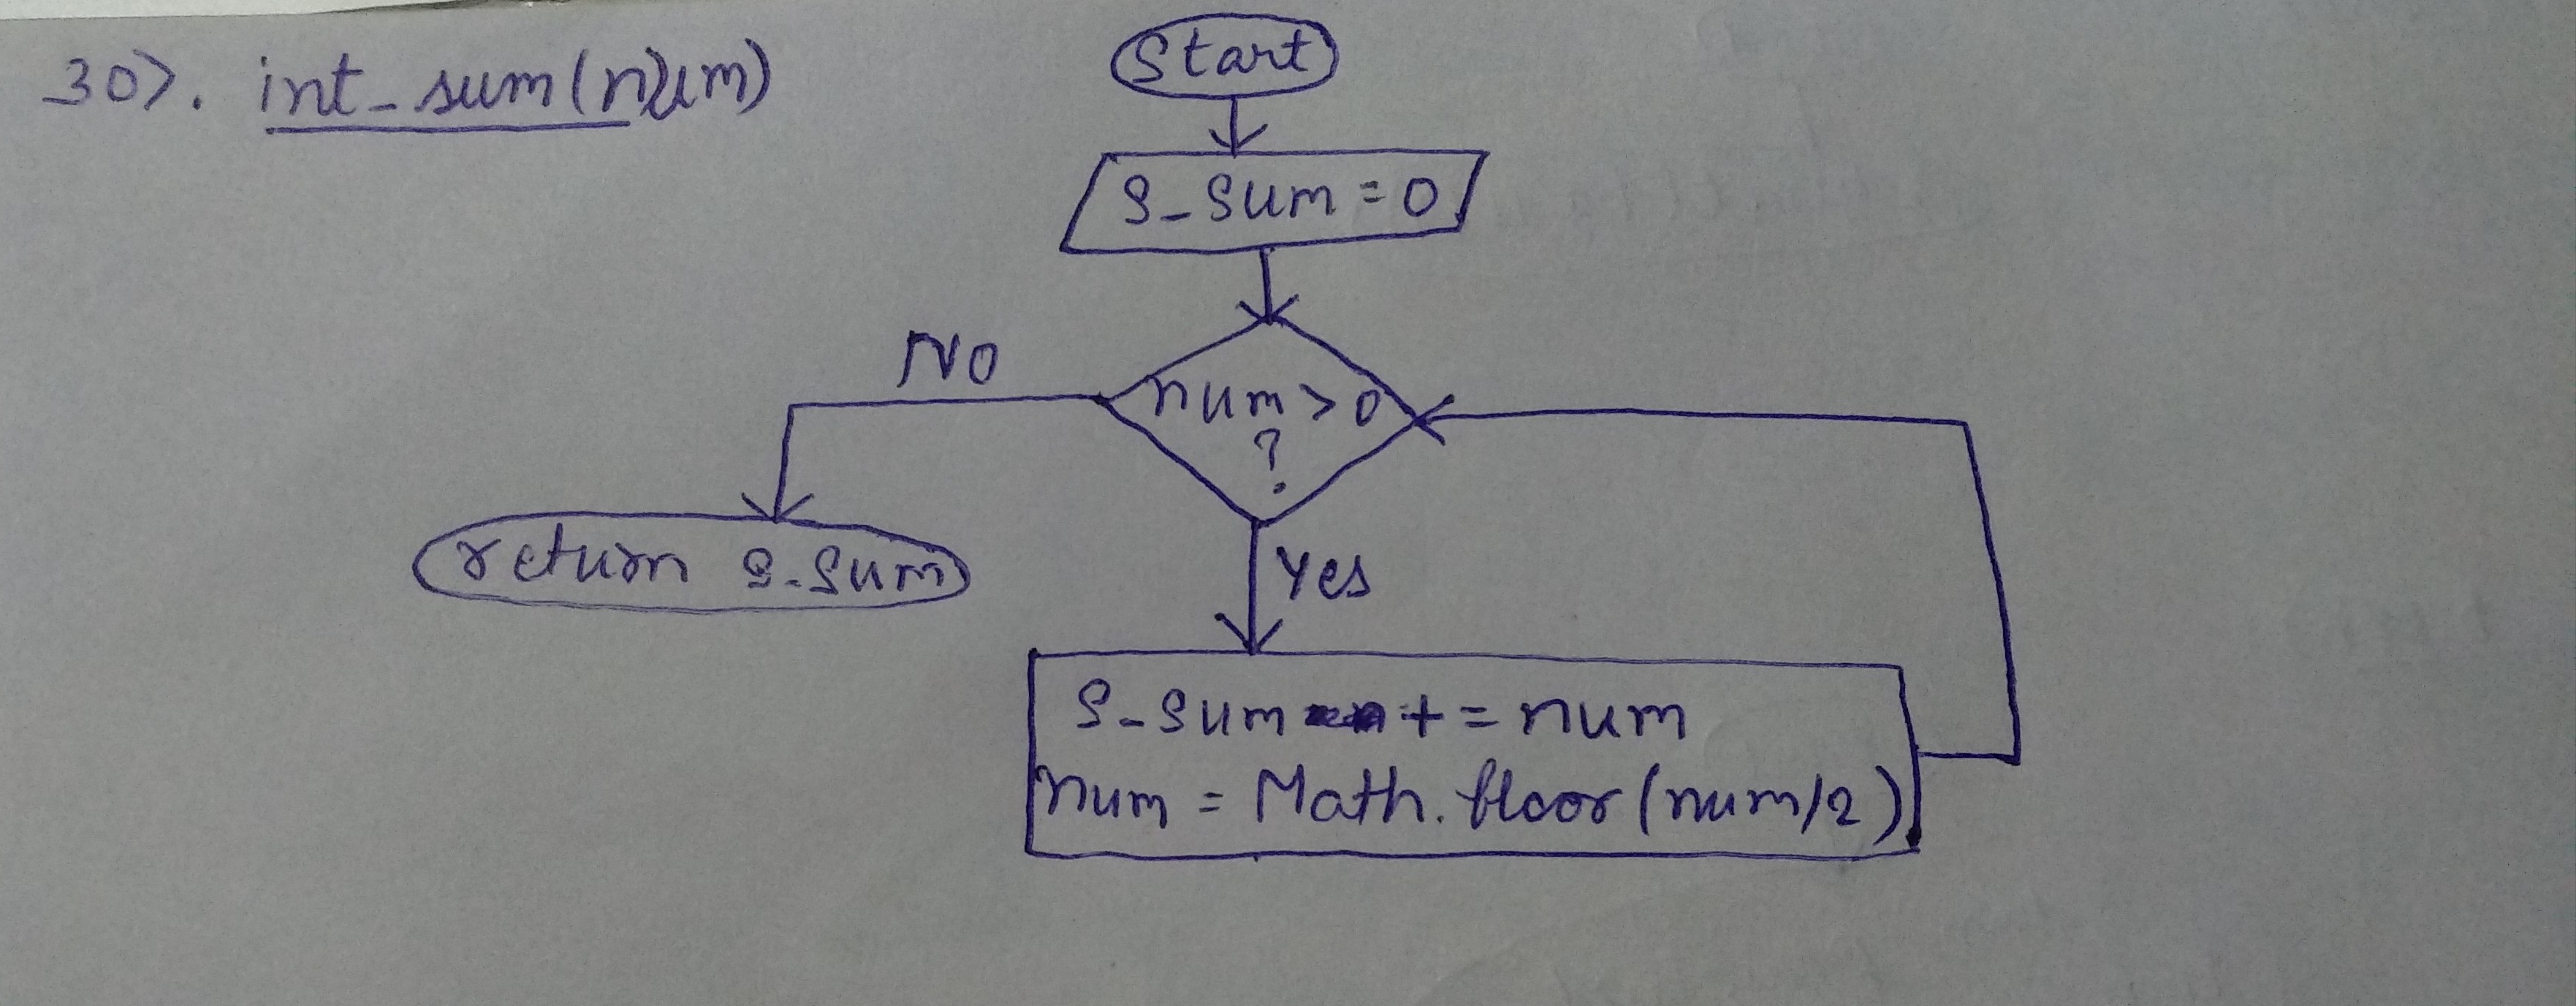 30>. int_sum(num)
Start
s_sum = 0
num > 0
?
NO
Yes
return s_sum
s_sum += num
num = Math.floor(num/2)